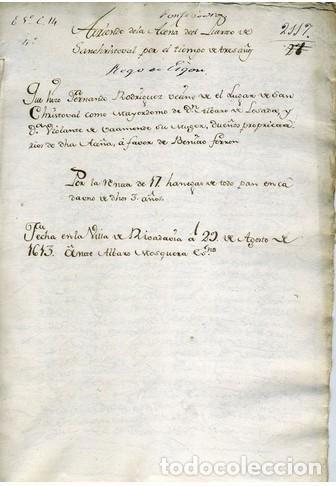 2117.
Arriendo de la Acena del Quarto de
Sanchristoval por el tiempo de tres años
Que hizo Fernando Rodriguez vecino de el Lugar de San
Christoval como Mayordomo de Dn Albaro de Losada, y
Dª Violante de Vaamonde su Muger, dueños proprieta
rios de dha Aceña, â favor de Benito Ferron
Por la renta de 17 hanegas de todo pan en ca
da uno de dhos 3. años.
Fecha en la Villa de Rivadavia â 29. de Agosto de
1613. Ante Albaro Mosquera Essno
todocoleccion.net